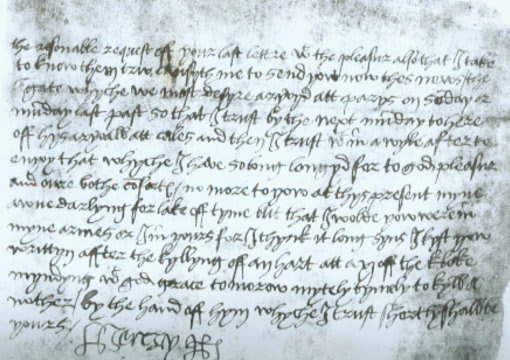 the resonable request off your last lettre wt the pleasur also that I take
to know them trw causyth me to send yow now thes news the
legate whyche we most desyre aryvyd att parys on sonday or
munday last past so that I trust by the next munday to here
off hys aryvall att cales and then I trust wtin a wyle after to
enjoy that whyche I have so long longyd for to god pleasur
and oure bothe cofortes no more to yow at thys present myne
awne darlyng for lake off tyme but that I wolde yow were in
myne armes or I in yours for I thynk it long syns I kyst yow
writtyn affter the kyllyng off an hart att a xj off the kloke
myndyng wt god grace to morow mytely tymely to kyll a
nother by the hand off hym whyche I trust shortly shall be
yours
Henry R